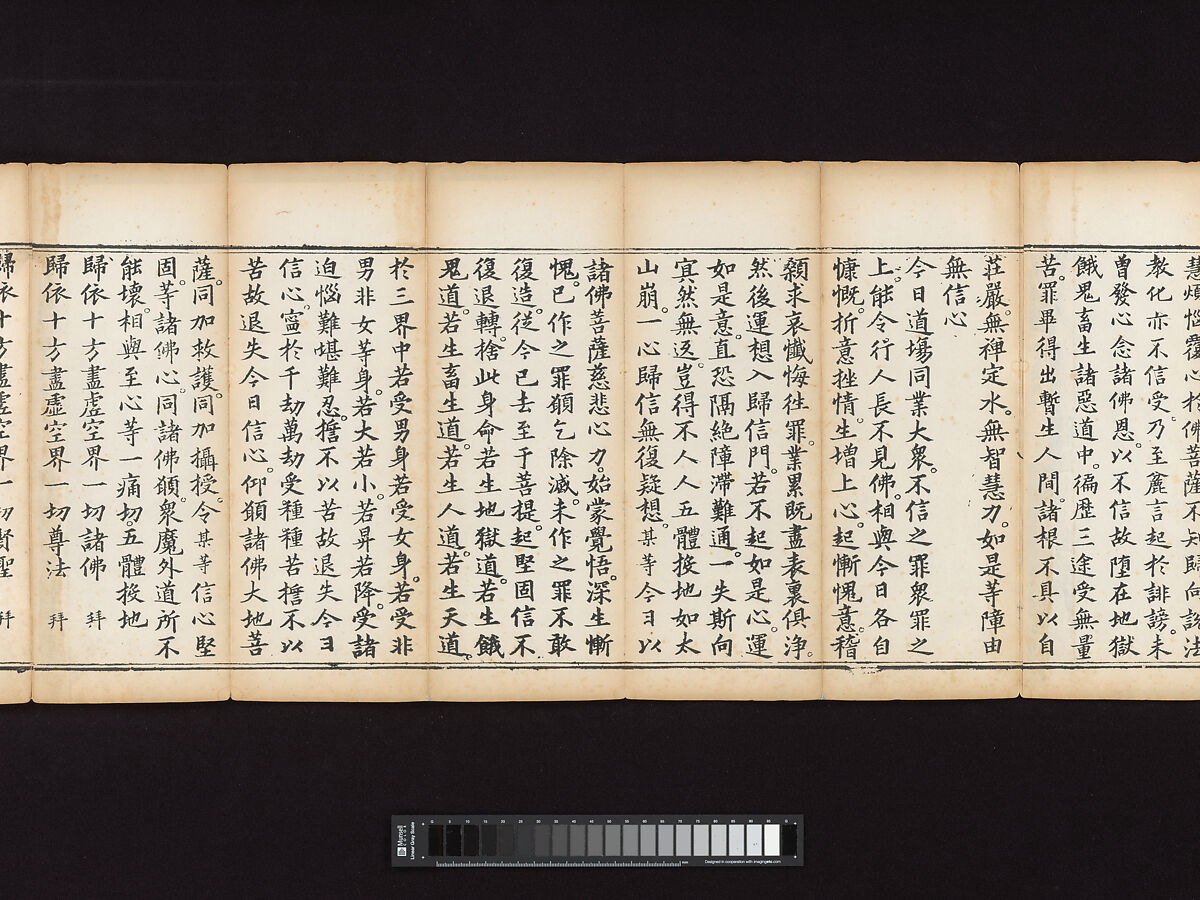 慧煩惱覆心於佛菩薩不知歸向說法
教化亦不信受乃至麄言起於誹謗。未
曾發心念諸佛恩。以不信故墮在地獄
餓鬼畜生諸惡道中。徧歷三途受無量
苦。罪畢得出暫生人間。諸根不具以自
莊嚴。無禪定水。無智慧力。如是等障由
無信心
今日道場同業大衆。不信之罪衆罪之
上。能令行人長不見佛。相與今日各自
慷慨。折意挫情。生增上心。起慚愧意。稽
顙求哀懺悔徃罪。業累既盡表裏俱淨。
然後運想入歸信門。若不起如是心。運
如是意。直恐隔絶障滯難通。一失斯向
冥然無返。豈得不人人五體投地如太
山崩。一心歸信無復疑想。某等今日以
諸佛菩薩慈悲心力。始蒙覺悟。深生慚
愧。已作之罪願乞除滅。未作之罪不敢
復造。從今已去至于菩提。起堅固信不
復退轉。捨此身命若生地獄道。若生餓
鬼道。若生畜生道。若生人道。若生天道。
於三界中若受男身若受女身。若受非
男非女等身。若大若小。若昇若降。受諸
迫惱難堪難忍。誓不以苦故退失今日
信心。寧於千劫萬劫受種種苦誓不以
苦故退失今日信心。仰願諸佛大地菩
薩。同加救護。同加攝授。令某等信心堅
固。等諸佛心。同諸佛願。衆魔外道所不
能壞。相與至心等一痛切。五體投地
歸依十方盡虛空界一切諸佛 拜
歸依十方盡虛空界一切尊法 拜
歸依十方盡虛空界一切賢聖 拜
Munsell COLOR
Linear Gray Scale
Designed in cooperation with imagingetc.com